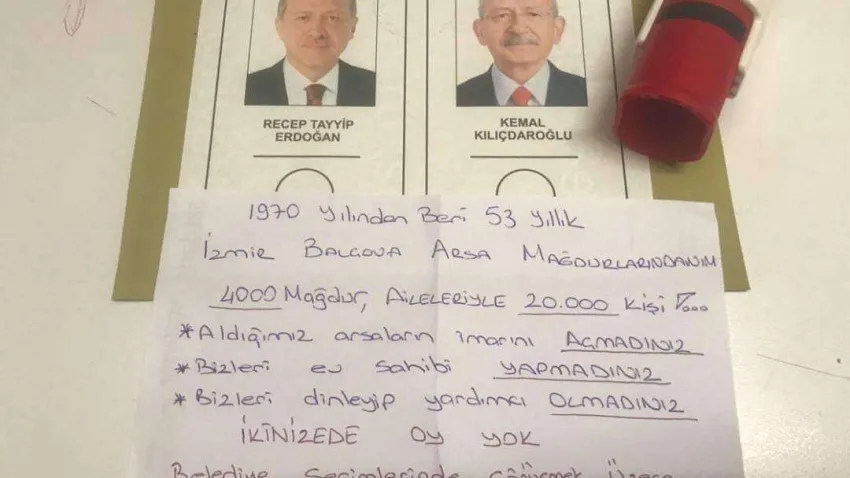 RECEP TAYYİP
ERDOĞAN
KEMAL
KILIÇDAROĞLU
1970 yılından Beri 53 yıllık
İzmir BALÇOVA ARSA MAĞDURLARINDANIM
4000 Mağdur, AİLELERİYLE 20.000 kişi
*Aldığımız arsaların imarını AÇMADINIZ
*Bizleri ev sahibi YAPMADINIZ
*Bizleri dinleyip yardımcı OLMADINIZ
İKİNİZEDE OY YOK
Belediye seçimlerinde görüşmek üzere